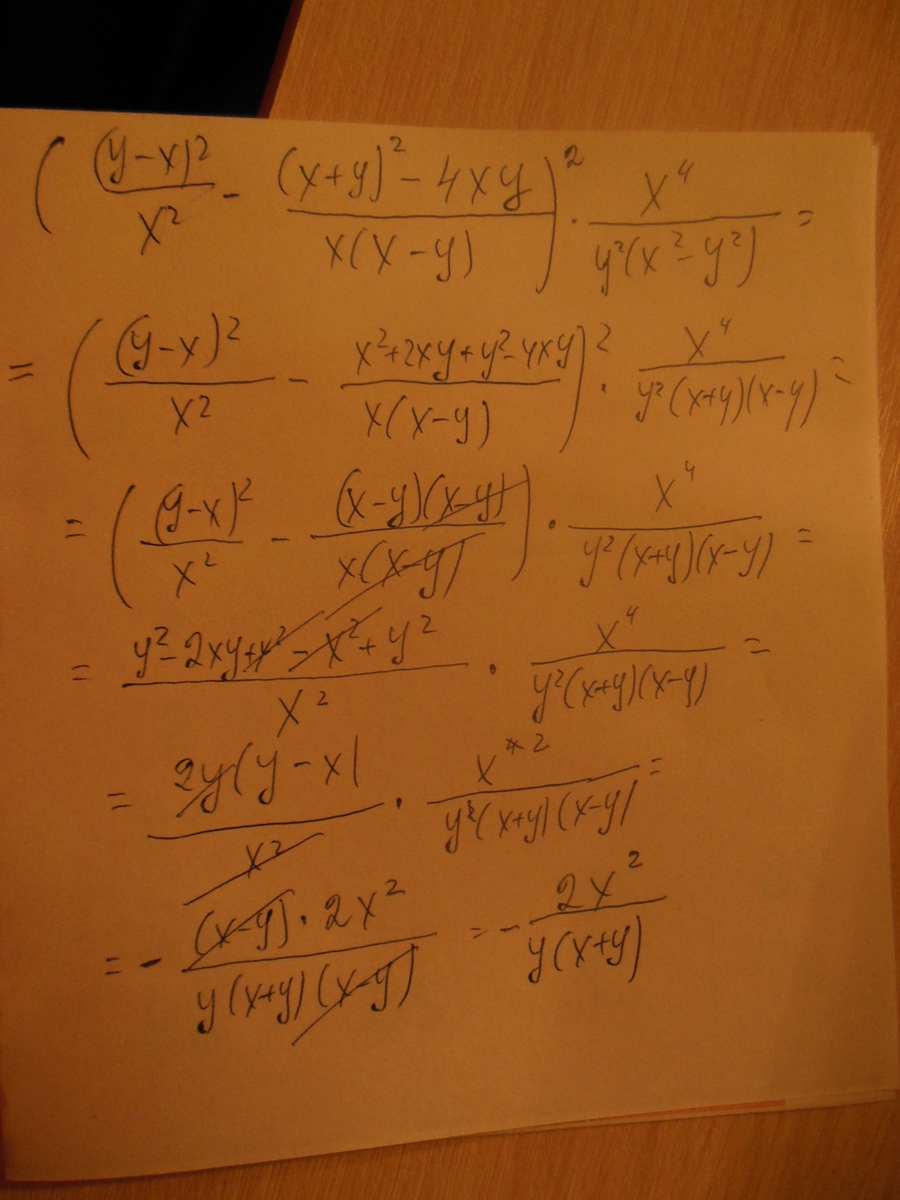 ( (y-x)²/x² - ((x+y)² - 4xy)/(x(x-y)) )² · x⁴/(y²(x²-y²)) =
= ( (y-x)²/x² - (x²+2xy+y²-4xy)/(x(x-y)) )² · x⁴/(y²(x+y)(x-y)) =
= ( (y-x)²/x² - ((x-y)(x-y))/(x(x-y)) ) · x⁴/(y²(x+y)(x-y)) =
= (y²-2xy+x²-x²+y²)/x² · x⁴/(y²(x+y)(x-y)) =
= (2y(y-x))/x² · x⁴ ²/(y²(x+y)(x-y)) =
= - ((x-y)·2x²)/(y(x+y)(x-y)) = - 2x²/(y(x+y))